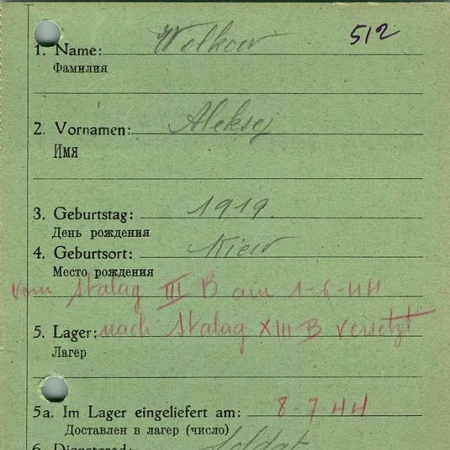 512
1. Name: Wolkow
Фамилия
2. Vornamen: Aleksej
Имя
3. Geburtstag: 1919.
День рождения
4. Geburtsort: Kiew
Место рождения
vom Stalag III B am 1-6-44
5. Lager: nach Stalag XIII B versetzt
Лагер
5a. Im Lager eingeliefert am: 8-7-44
Доставлен в лагер (число)
6. Dienstgrad: Soldat